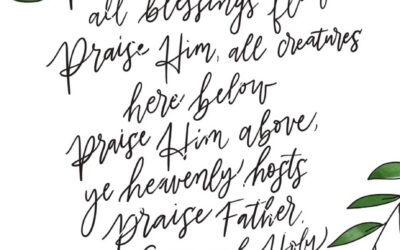 all blessings
Praise Him, all creatures
here below
Praise Him above,
ye heavenly hosts
Praise Father,
Holy